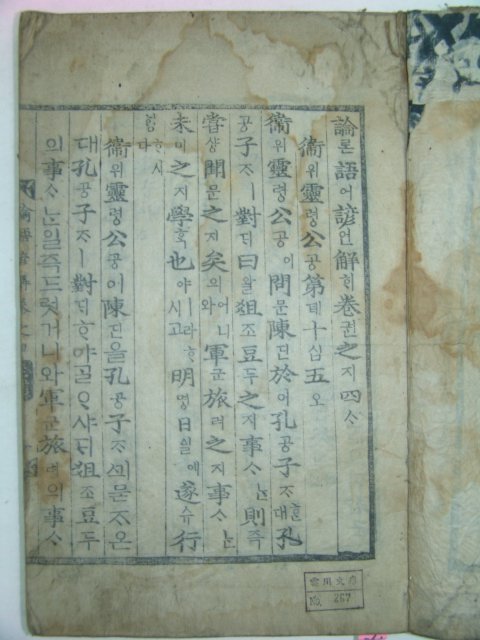 論론語어諺언解ᄒᆡ卷권之지四ᄉᆞ
衛위靈령公공第뎨十십五오
衛위靈령公공이問문陳딘於어孔공子ᄌᆞᄒᆞᆫ대孔
공子ᄌᆞㅣ對ᄃᆡ曰왈俎조豆두之지事ᄉᆞᄂᆞᆫ則즉
嘗샹聞문之지矣의어니와軍군旅려之지事ᄉᆞᄂᆞᆫ
未미之지學ᄒᆞᆨ也야ㅣ라ᄒᆞ시고明명日일에遂슈行
ᄒᆡᆼᄒᆞ시다
衛위靈령公공이陳딘을孔공子ᄌᆞᄭᅴ묻ᄌᆞ온
대孔공子ᄌᆞㅣ對ᄃᆡᄒᆞ야ᄀᆞᆯᄋᆞ샤ᄃᆡ俎조豆두
의事ᄉᆞᄂᆞᆫ일즉드럿거니와軍군旅려의事ᄉᆞ
論語諺解卷之四
No. 267